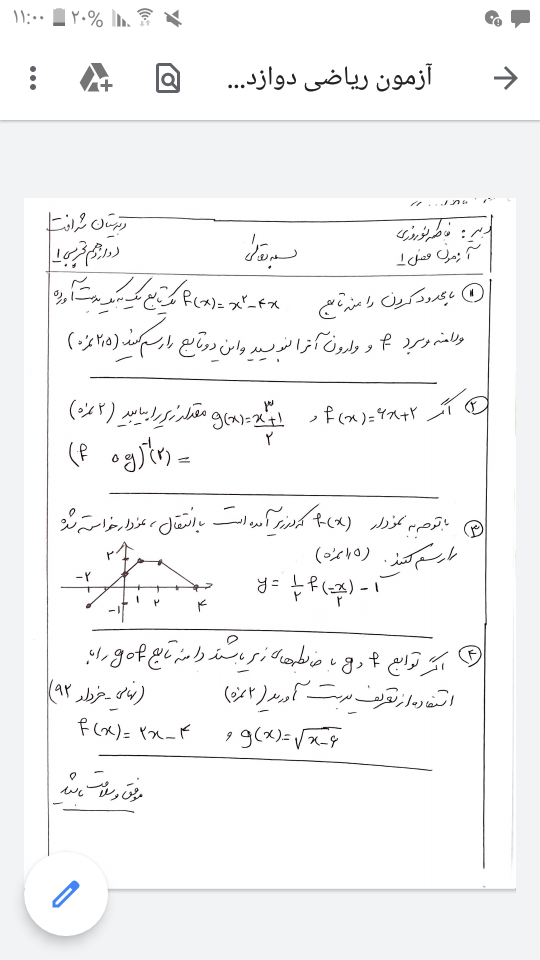 ۱۱:۰۰ ۲۰%
آزمون ریاضی دوازد...
دبیر: فاطمه نوروزی
دبیرستان شرافت
آزمون فصل ۱
بسمه تعالی
دوازدهم تجربی ۱
۱ با محدود کردن دامنه تابع f(x)=x²-۴x یک تابع یک به یک بدست آورده
و دامنه و برد f و وارون آنرا بنویسید و این دو تابع را رسم کنید (۲,۵ نمره)
۲ اگر f(x)=۶x+۲ و g(x)=x³+۱/۲ مقدار زیر را بیابید (۲ نمره)
(f o g)⁻¹(۲) =
۳ با توجه به نمودار f(x) که در زیر آمده است با انتقال، نمودار خواسته شده
را رسم کنید. (۱,۵ نمره)
y = ۱/۲ f(-x/۲) - ۱
۲ -۲ ۱ ۲ ۴ -۱
۴ اگر توابع f و g با ضابطه‌های زیر باشند دامنه تابع gof را با
استفاده از تعریف بدست آورید (۲ نمره) (نهایی - خرداد ۹۲)
f(x)= ۲x-۴ و g(x)=√x-۶
موفق و سلامت باشید